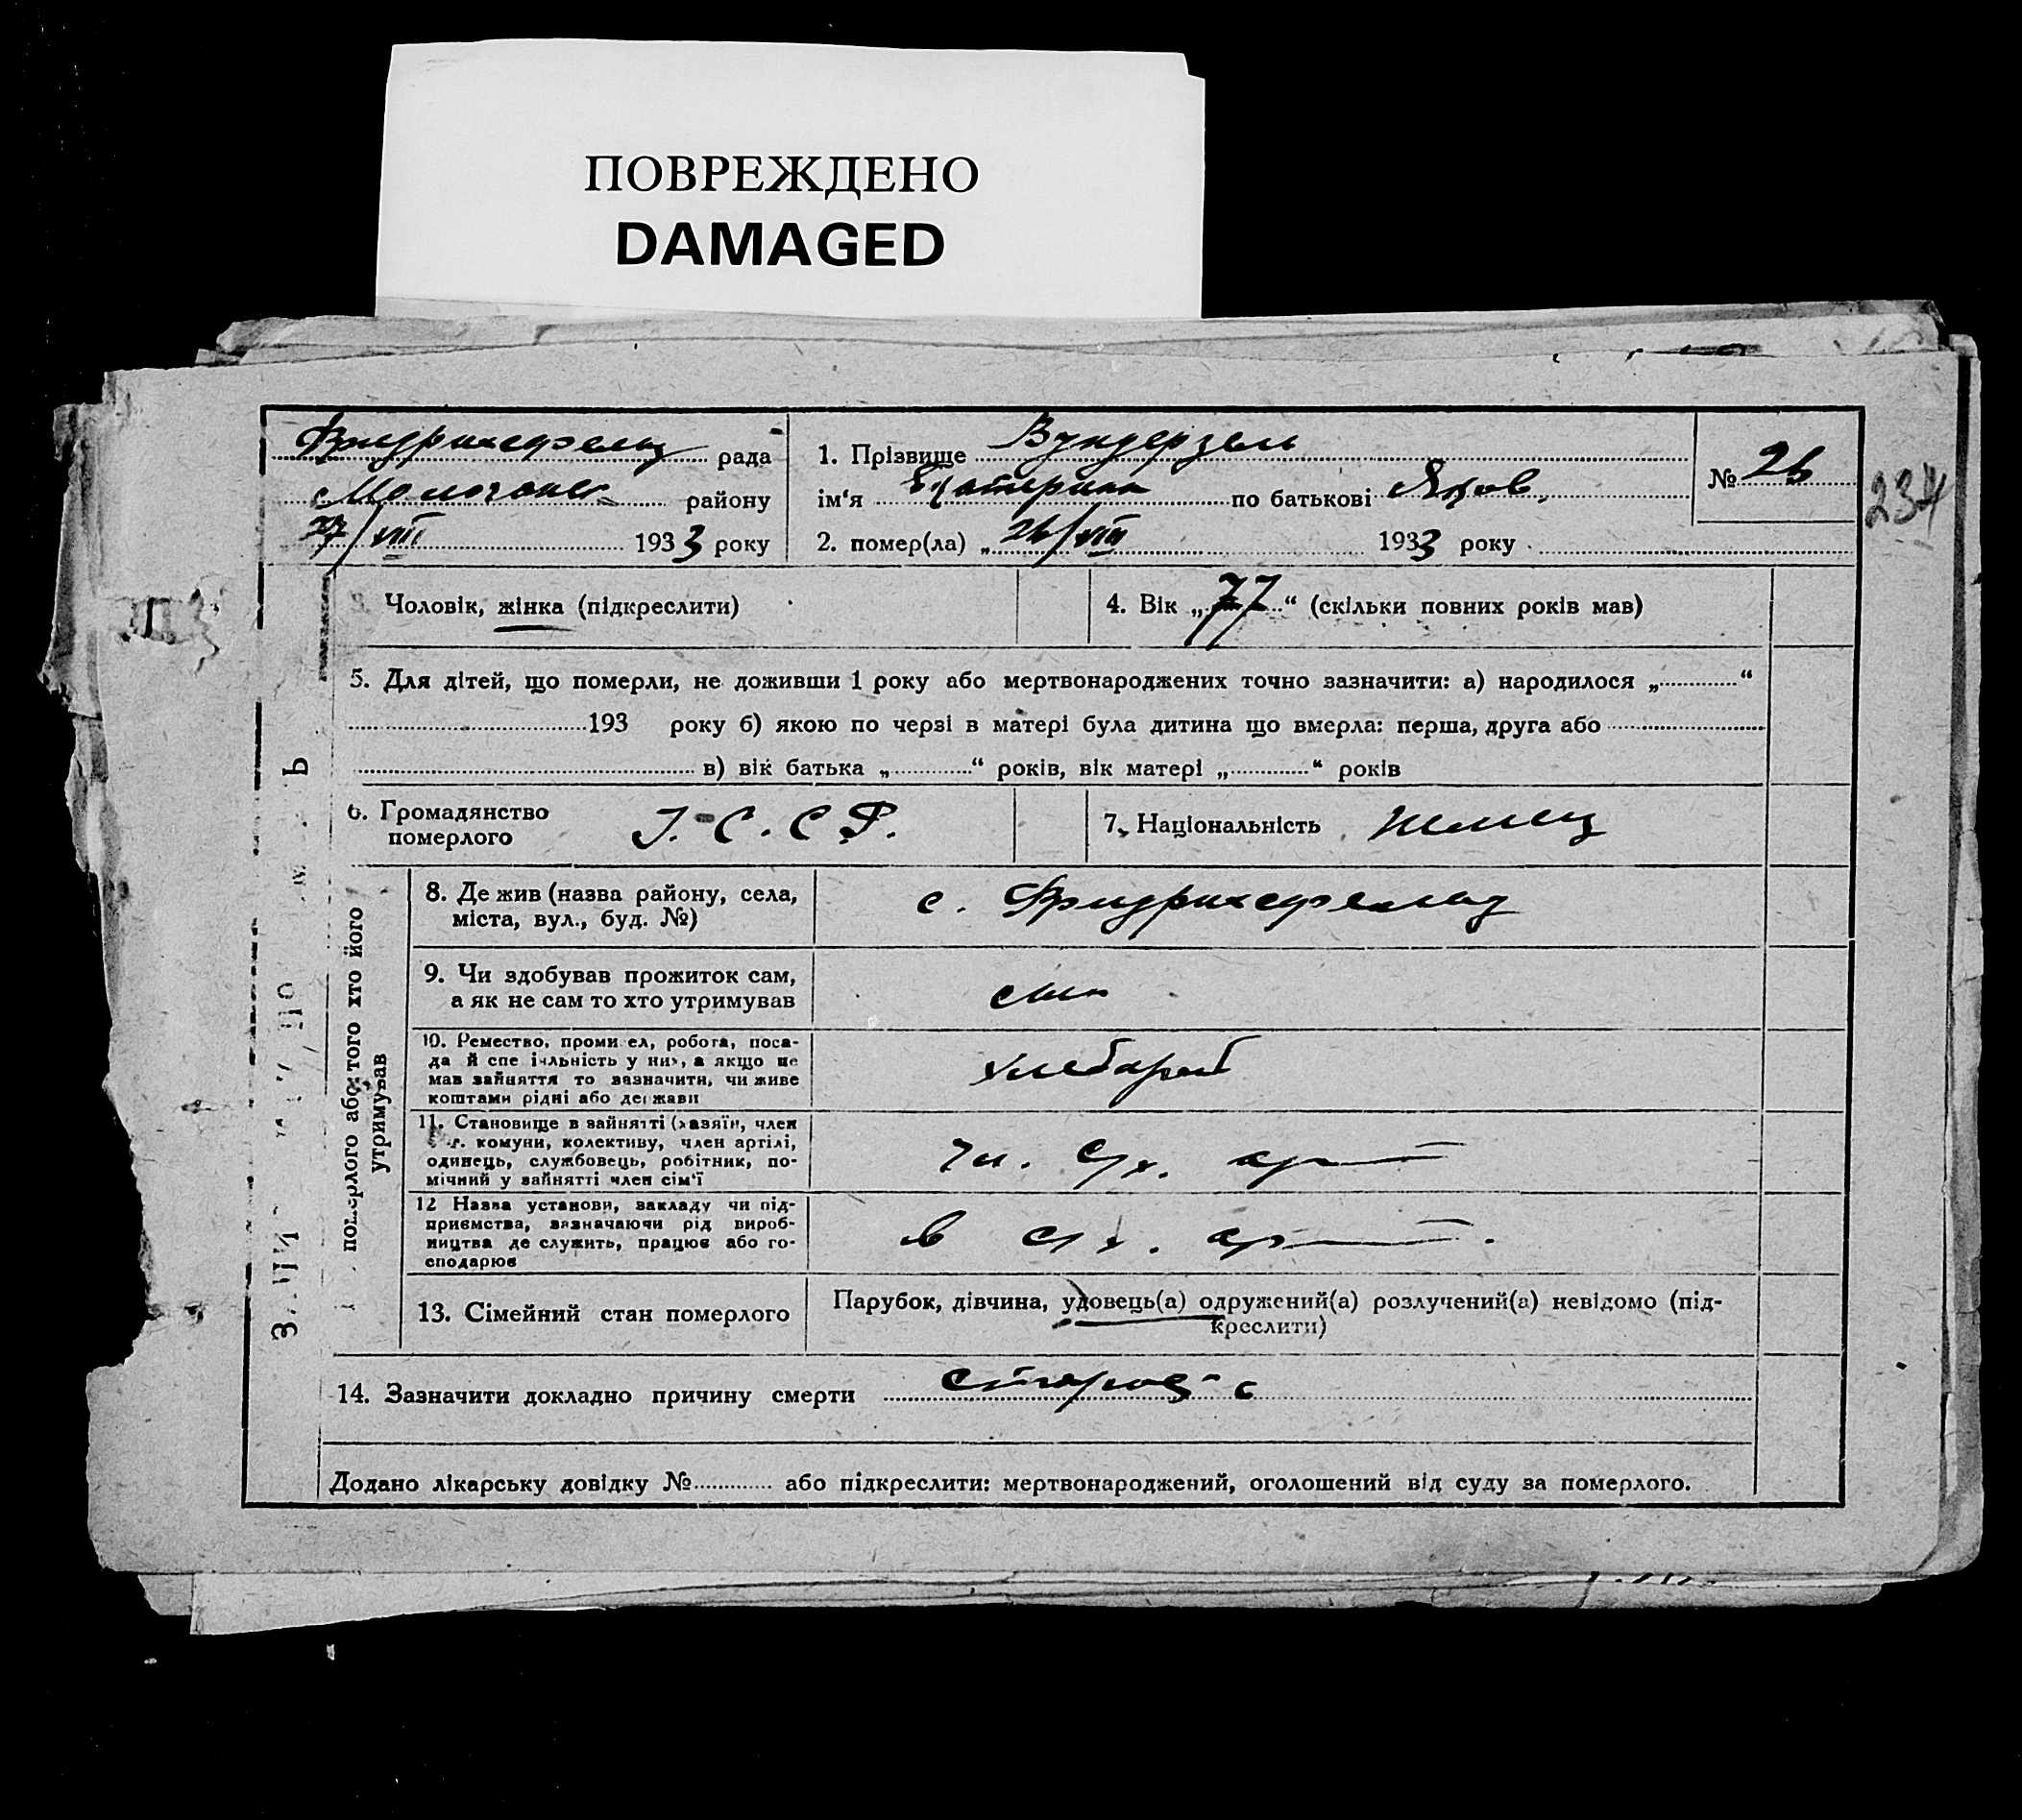 ПОВРЕЖДЕНО
DAMAGED
Фридрихсфельд рада
Молочанск району
27/VIII 1933 року
1. Прізвище Вундерзель
ім'я Екатерина по батькові Яков.
2. помер(ла) „ 26/VIII 1933 року
№ 26
234
3. Чоловік, жінка (підкреслити)
4. Вік „77“ (скільки повних років мав)
5. Для дітей, що померли, не доживши 1 року або мертвонароджених точно зазначити: а) народилося „ “
193 року б) якою по черзі в матері була дитина що вмерла: перша, друга або
в) вік батька „ “ років, вік матері „ “ років
6. Громадянство
померлого
У.С.С.Р.
7. Національність Немец
померлого або того хто його
утримував
8. Де жив (назва району, села,
міста, вул., буд. №)
с. Фридрихсфельд
9. Чи здобував прожиток сам,
а як не сам то хто утримував
10. Ремество, проми ел, робота, поса-
да й спе іяльність у них, а якщо не
мав зайняття то зазначити, чи живе
коштами рідні або держави
хлебароб
11. Становище в зайнятті (хазяїн, член
с.-г. комуни, колективу, член артілі,
одинець, службовець, робітник, по-
мічний у зайнятті член сім'ї
чл. с/х. арт
12 Назва установи, закладу чи під-
приємства, зазначаючи рід вироб-
ництва де служить, працює або го-
сподарює
в с/х. арт.
13. Сімейний стан померлого
Парубок, дівчина, удовець(а) одружений(а) розлучений(а) невідомо (під-
креслити)
14. Зазначити докладно причину смерти
Додано лікарську довідку № або підкреслити: мертвонароджений, оголошений від суду за померлого.